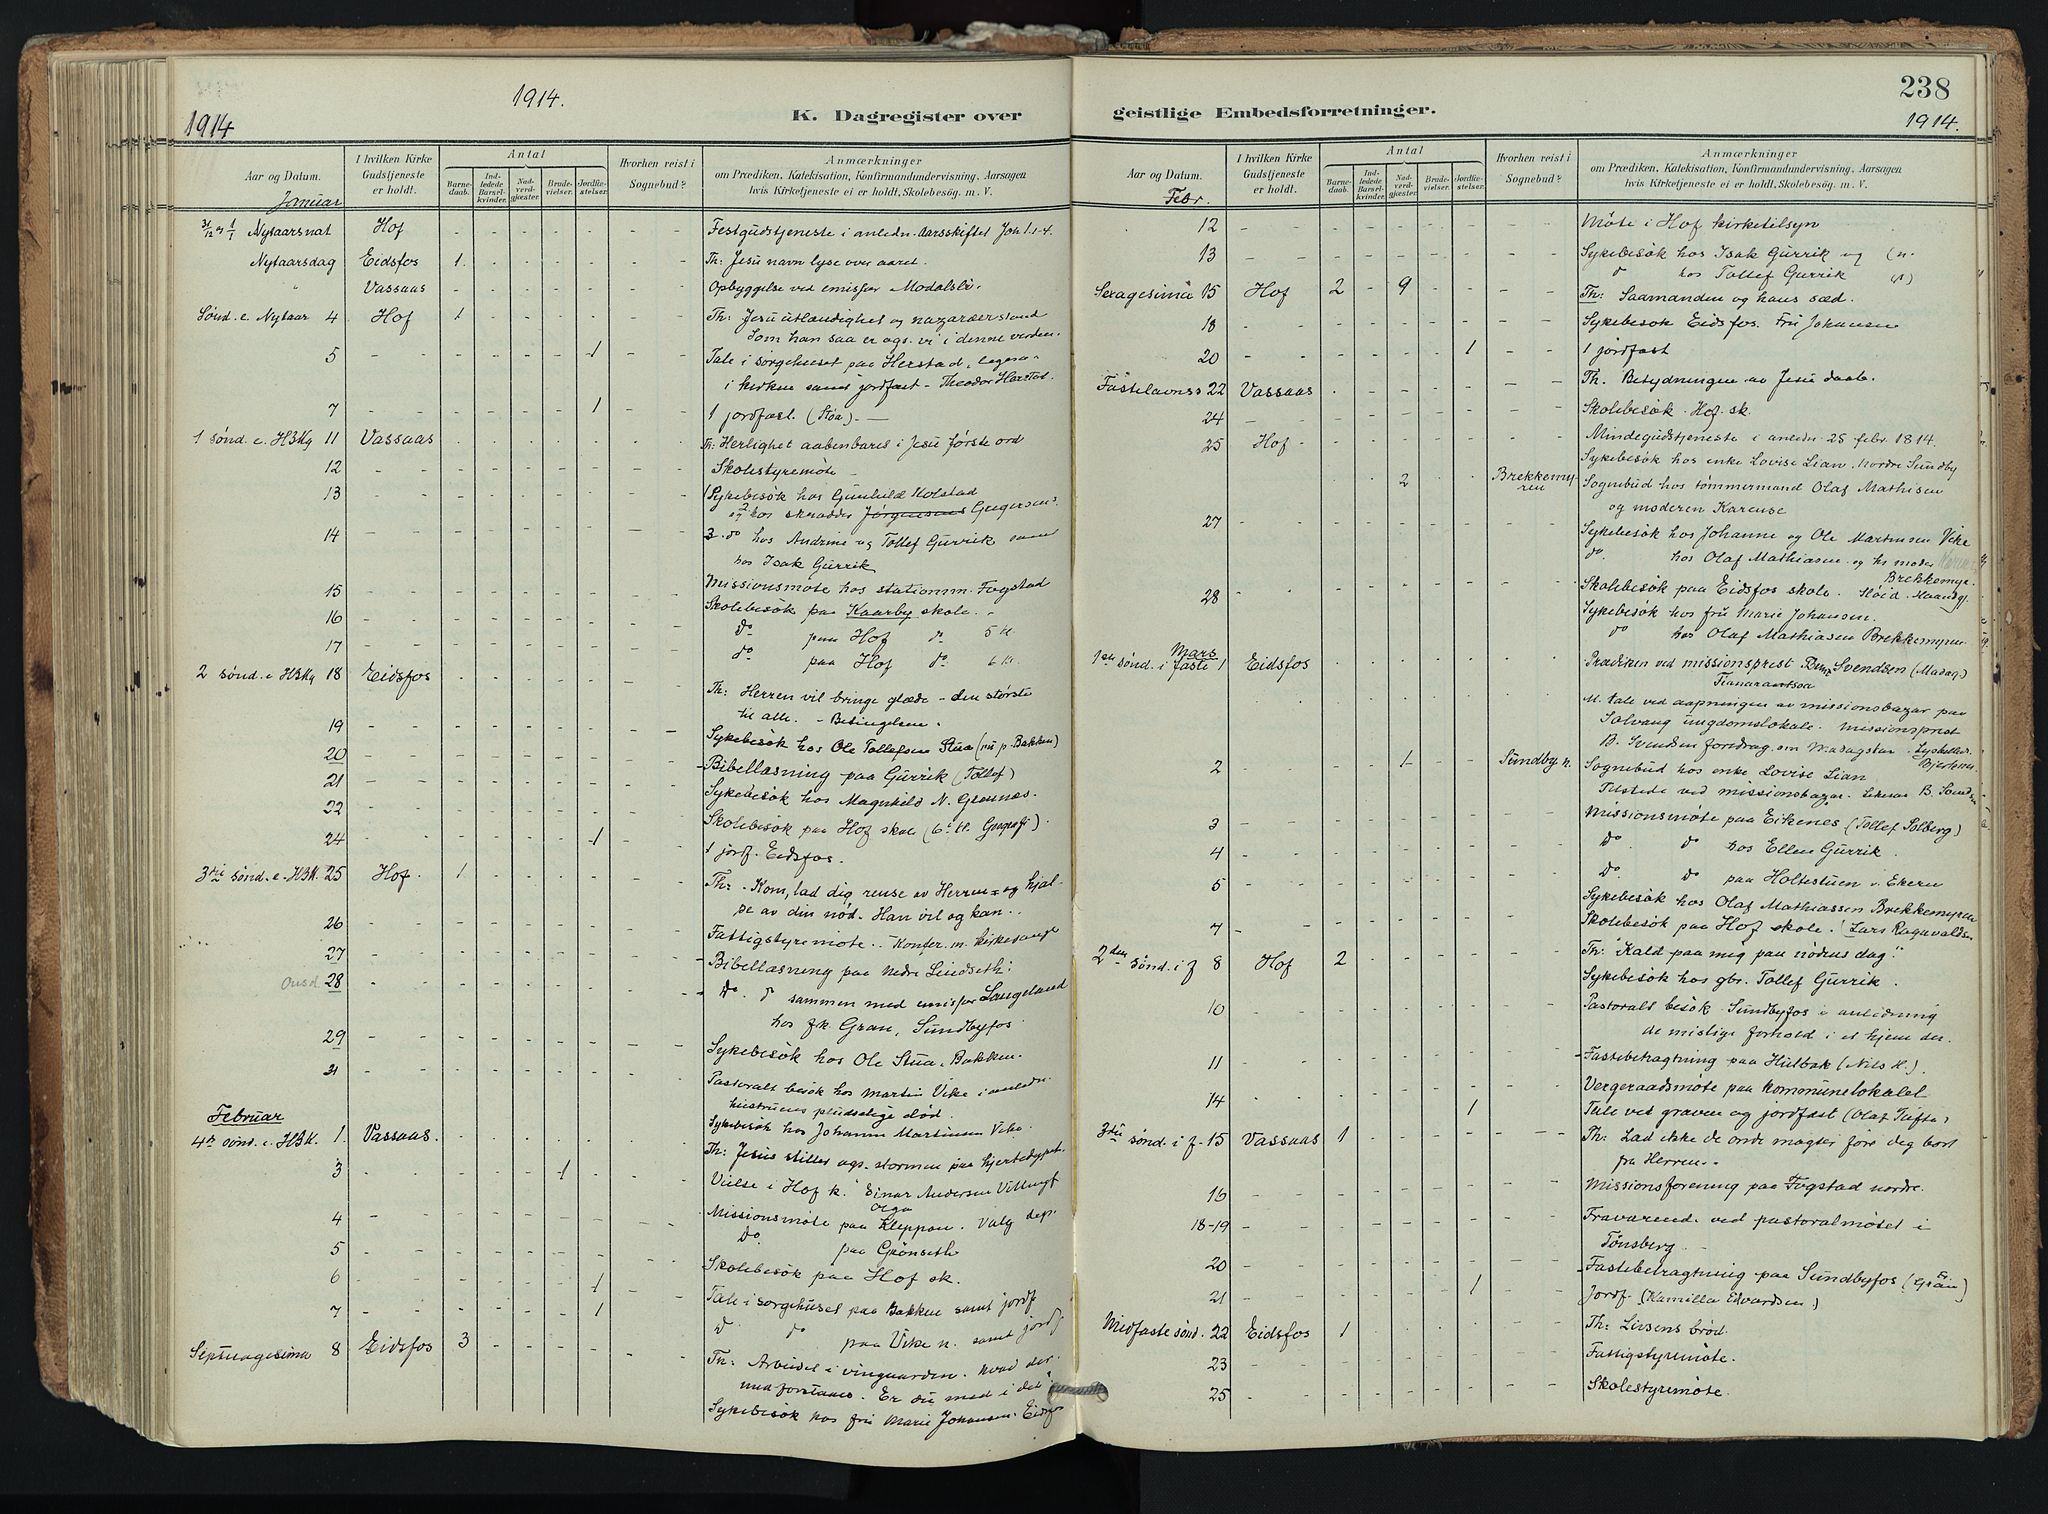 1914
1914.
K. Dagregister over
Antal
Aar og Datum.
I hvilken Kirke Gudstjeneste er holdt.
Barnedaab.
Indledede Barselkvinder.
Nadverdgjester.
Brudevielser.
Jordfæstelser.
Hvorhen reist i Sognebud?
Anmærkninger
om Prædiken, Katekisation, Konfirmandundervisning, Aarsagen
hvis Kirketjeneste ei er holdt, Skolebesög m. V.
Januar
31/12 og 1/1 Nytaarsnat Hof Festgudstjeneste i anledn. aarsskiftet Joh 1.1-4.
Nytaarsdag Eidsfos 1 Th: Jesu navn lyse over aaret.
" Vassaas Opbyggelse ved emissær Modalsli.
Sönd. e. Nytaar 4 Hof 1 Th: Jesu utlændighet og nazaræerstand
Som han saa er ogs. vi i denne verden.
5 1 Tale i sørgehuset paa Herstad,
i kirken samt jordfæst - Theodor Herstad.
7 1 1 jordfæst. (Støa)
1 sønd. e. H3Kg 11 Vassaas Th: Herlighet aabenbaret i Jesu første ord
12 Skolestyremöte
13 Sykebesök hos Gunhild Kolstad
og hos skrædder Jørgensens Gregersen.
14 3 do hos Andrine og Tollef Gurrik samt
hos Isak Gurrik
15 Missionsmöte hos stationsm. Fogstad
16 Skolebesök paa Kaarby skole.
do paa Hof do 5 kl.
17 do paa Hof do 6 kl.
2 sönd. e H3Kg 18 Eidsfos
Th: Herren vil bringe glæde - den største
til alle. - Betingelsen.
19 Sykebesök hos Ole Tollefsen Stua (nu p. Bakken)
20 Bibellæsning paa Gurrik (Tollef)
21 Sykebesök hos Magnhild N. Grønnes.
22 Skolebesök paa Hof skole (6te kl. Geografi)
24 1 1 jordf. Eidsfos.
3die sønd. e. H3K. 25 Hof 1 Th: Kom, lad dig rense av Herren og hjæl-
pe av din nöd. Han vil og kan..
26 Fattigstyremöte. - Konfer. m. kirkesanger
27 Bibellæsning paa nedre Lindseth:
Onsd. 28 do do sammen med emissær Langeland
hos fk. Gran, Sundbyfos
29 Sykebesök hos Ole Stua, Bakken.
31 Pastoralt besök hos Martin Vike i anledn.
hustruens pludselige död.
Februar
Sykebesök hos Johanne Martinsen Vike.
4de sønd. e. H3K. 1. Vassaas. Th: Jesus stiller ogs. stormen paa hjertedypet.
3 1 Vielse i Hof k. Einar Andersen
4 Missionsmöte paa Kleppan. Valg dep.
5 do paa Grönseth
6 1 Skolebesök paa Hof sk.
7 1 Tale i sörgehuset paa Bakken samt jordf
do do paa Vike n. samt jordf
Septuagesima 8 Eidsfos 3 Th: Arbeidet i vingaarden. Hvad der-
med forstaaes. Er du med i det?
Sykebesök hos fru Marie Johansen. Eidsfos
238
1914.
geistlige Embedsforretninger.
Antal
Aar og Datum.
I hvilken Kirke Gudstjeneste er holdt.
Barnedaab.
Indledede Barselkvinder.
Nadverdgjester.
Brudevielser.
Jordfæstelser.
Hvorhen reist i Sognebud?
Anmærkninger
om Prædiken, Katekisation, Konfirmandundervisning, Aarsagen
hvis Kirketjeneste ei er holdt, Skolebesög m. V.
Febr.
12 Møte i Hof kirketilsyn
13 Sykebesök hos Isak Gurrik og
do hos Tollef Gurrik
Sexagesima 15 Hof 2 9 Th: Saamanden og hans sæd.
18 Sykebesök Eidsfos. Fru Johansen
20 1 1 jordfæst
Fastelavnss 22 Vassaas Th. Betydningen av Jesu daab.
24 Skolebesök. Hof sk.
25 Hof Mindegudstjeneste i anledn. 25 febr. 1814.
Sykebesök hos enke Lovise Lian. Nordre Sundby
2 Brekkemyren Sognebud hos tømmermand Olaf Mathisen
og moderen Karense
27 Sykebesök hos Johanne og Ole Martinsen Vike
do. hos Olaf Mathiasen og hs moder
Brekkemyr.
28 Skolebesök paa Eidsfos skole. Sløid.
Sykebesök hos fru Marie Johansen.
do hos Olaf Mathiasen Brekkemyren
Mars
1ste sønd. i faste 1 Eidsfos Prædiken ved missionsprest Svendsen (Madag.)
Fianarantsoa
M. tale ved aapningen av missionsbazar paa
Solvang ungdomslokale. Missionsprest
B. Svendsen foredrag om Madagaskar.
2 1 Sundby n. Sognebud hos enke Lovise Lian
Tilstede ved missionsbazar.
3 Missionsmöte paa Eikenes (Tollef Solberg)
4 do. do hos Ellen Gurrik.
5 do. do paa Holtestuen v. Ekern
Sykebesök hos Olaf Mathiassen Brekkemyren
7 Skolebesök paa Hof skole. (Lars Ragnvaldsen
2den sønd. i f 8 Hof 2 Th: "Kald paa mig paa nödens dag."
Sykebesök hos gbr. Tollef Gurrik.
10 Pastoralt besök. Sundbyfos i anledning
de mislige forhold i et hjem der.
11 Fastebetragtning paa Hulbak (Nils H.).
Vergeraadsmöte paa kommunelokalet
14 1 Tale ved graven og jordfæst (Olaf Tufte)
3die sønd. i f. 15 Vassaas 1 Th: Lad ikke de onde magter före dig bort
fra Herren.
16 Missionsforening paa Fogstad nordre.
18-19 Fraværende ved pastoralmötet i
Tønsberg.
20 Fastebetragtning paa Sundbyfos (Gran)
21 1 Jordf. (Kamilla Edvardsen)
Midfaste sønd. 22 Eidsfos 1 Th: Livsens bröd.
23 Fattigstyremöte.
25 Skolestyremöte.